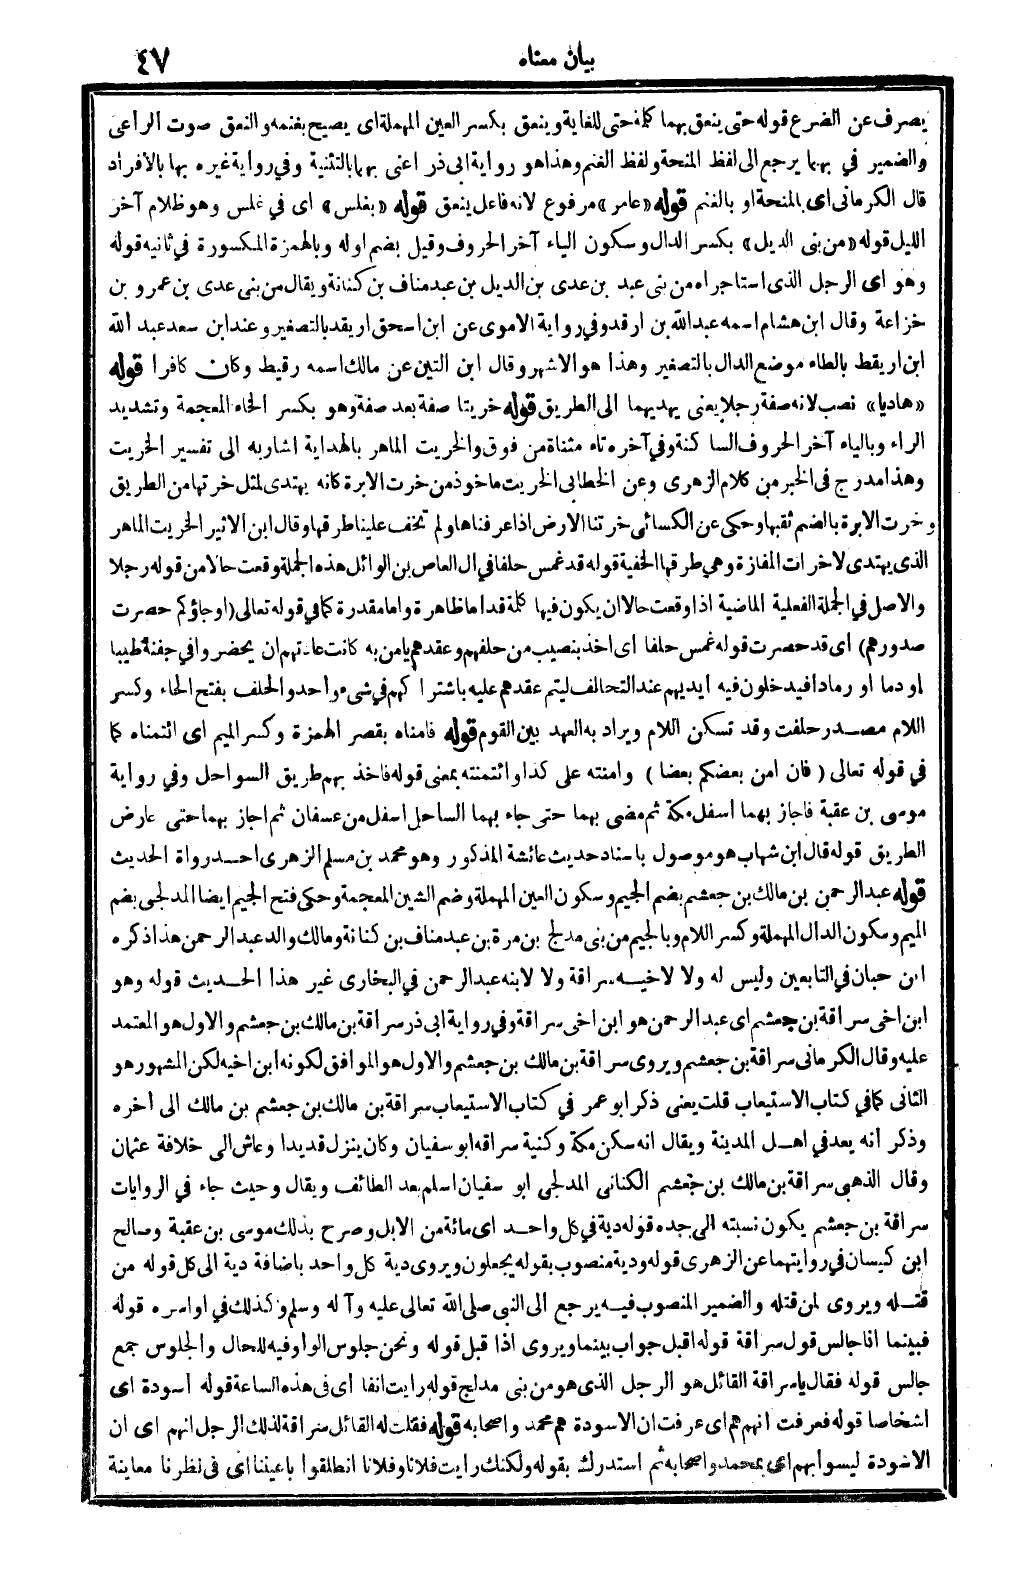 بيان معناه ٤٧
يصرف عن الضرع قوله حتى ينعق بهما كلمة حتى للغاية وينعق بكسر العين المهملة اى يصيح بغنمه والنعق صوت الراعى
والضمير في بهما يرجع الى لفظ المنحة ولفظ الغنم وهذا هو رواية ابى ذر اعنى بهما بالتثنية وفي رواية غيره بها بالأفراد
قال الكرمانى اى بالمنحة او بالغنم قوله «عامر» مرفوع لانه فاعل ينعق قوله «بغلس» اى في غلس وهو ظلام آخر
الليل قوله «من بنى الديل» بكسر الدال وسكون الياء آخر الحروف وقيل بضم اوله وبالهمزة المكسورة في ثانيه قوله
وهو اى الرجل الذى استاجراه من بنى عبد بن عدى بن الديل بن عبد مناف بن كنانة ويقال من بنى عدى بن عمرو بن
خزاعة وقال ابن هشام اسمه عبدالله بن ارقد وفي رواية الاموى عن ابن اسحق اريقد بالتصغير وعند ابن سعد عبد الله
ابن اريقط بالطاء موضع الدال بالتصغير وهذا هو الاشهر وقال ابن التين عن مالك اسمه رقيط وكان كافرا قوله
«هاديا» نصب لانه صفة رجلا يعنى يهديهما الى الطريق قوله خريتا صفة بعد صفة وهو بكسر الخاء المعجمة وتشديد
الراء وبالياء آخر الحروف الساكنة وفي آخره تاء مثناة من فوق والخريت الماهر بالهداية اشار به الى تفسير الخريت
وهذا مدرج فى الخبر من كلام الزهرى وعن الخطابى الخريت ماخوذ من خرت الابرة كانه يهتدى لمثل خرتها من الطريق
وخرت الابرة بالضم ثقبها وحكى عن الكسائى خرتنا الارض اذا عرفناها ولم تخف علينا طرقها وقال ابن الاثير الخريت الماهر
الذى يهتدى لاخرات المفازة وهي طرقها الخفية قوله قد غمس حلفا في ال العاص بن الوائل هذه الجملة وقعت حالا من قوله رجلا
والاصل في الجملة الفعلية الماضية اذا وقعت حالا ان يكون فيها كلمة قد اما ظاهرة واما مقدرة كما في قوله تعالى (او جاؤكم حصرت
صدورهم) اى قد حصرت قوله غمس حلفا اى اخذ بنصيب من حلفهم وعقدهم يامن به كانت عادتهم ان يحضروا في جفنة طيبا
او دما او رمادا فيدخلون فيه ايديهم عند التحالف ليتم عقدهم عليه باشتراكهم في شىء واحد والحلف بفتح الحاء وكسر
اللام مصدر حلفت وقد تسكن اللام ويراد به العهد بين القوم قوله فامناه بقصر الهمزة وكسر الميم اى ائتمناه كما
في قوله تعالى ( فان امن بعضكم بعضا ) وامنته على كذا وائتمنته بمعنى قوله فاخذ بهم طريق السواحل وفي رواية
موسى بن عقبة فاجاز بهما اسفل مكة ثم مضى بهما حتى جاء بهما الساحل اسفل من عسفان ثم اجاز بهما حتى عارض
الطريق قوله قال ابن شهاب هو موصول باسناد حديث عائشة المذكور وهو محمد بن مسلم الزهرى احد رواة الحديث
قوله عبد الرحمن بن مالك بن جعشم بضم الجيم وسكون العين المهملة وضم الشين المعجمة وحكى فتح الجيم ايضا المدلجى بضم
الميم وسكون الدال المهملة وكسر اللام وبالجيم من بنى مدلج بن مرة بن عبد مناف بن كنانة ومالك والد عبد الرحمن هذا ذكره
ابن حبان في التابعين وليس له ولا لاخيه سراقة ولا لابنه عبد الرحمن في البخارى غير هذا الحديث قوله وهو
ابن اخى سراقة بن جعشم اى عبد الرحمن هو ابن اخى سراقة وفي رواية ابى ذر سراقة بن مالك بن جعشم والاول هو المعتمد
عليه وقال الكرمانى سراقة بن جعشم ويروى سراقة بن مالك بن جعشم والاول هو الموافق لكونه ابن اخيه لكن المشهور هو
الثانى كما في كتاب الاستيعاب قلت يعنى ذكر ابو عمر في كتاب الاستيعاب سراقة بن مالك بن جعشم بن مالك الى أخره
وذكر أنه يعد في اهل المدينة ويقال انه سكن مكة وكنية سراقه ابو سفيان وكان ينزل قديدا وعاش الى خلافة عثمان
وقال الذهبى سراقة بن مالك بن جعشم الكنانى المدلجى ابو سفيان اسلم بعد الطائف ويقال وحيث جاء في الروايات
سراقة بن جعشم يكون نسبته الى جده قوله دية في كل واحد اى مائة من الابل وصرح بذلك موسى بن عقبة وصالح
ابن كيسان في روايتهما عن الزهرى قوله ودية منصوب بقوله يجعلون ويروى دية كل واحد باضافة دية الى كل قوله من
قتله ويروى لمن قتله والضمير المنصوب فيه يرجع الى النبى صلى الله تعالى عليه وآله وسلم وكذلك في او اسره قوله
فبينما انا جالس قول سراقة قوله اقبل جواب بينما ويروى اذا قبل قوله ونحن جلوس الواو فيه للحال والجلوس جمع
جالس قوله فقال ياسراقة القائل هو الرجل الذى هو من بنى مدلج قوله رايت انفا اى فى هذه الساعة قوله أسودة اى
اشخاصا قوله فعرفت انهم هم اى عرفت ان الاسودة هم محمد واصحابه قوله فقلت له القائل سراقة لذلك الرجل انهم اى ان
الاسودة ليسوا بهم اى بمحمد واصحابه ثم استدرك بقوله ولكنك رايت فلانا وفلانا انطلقوا باعيننا اى فى نظرنا معاينة